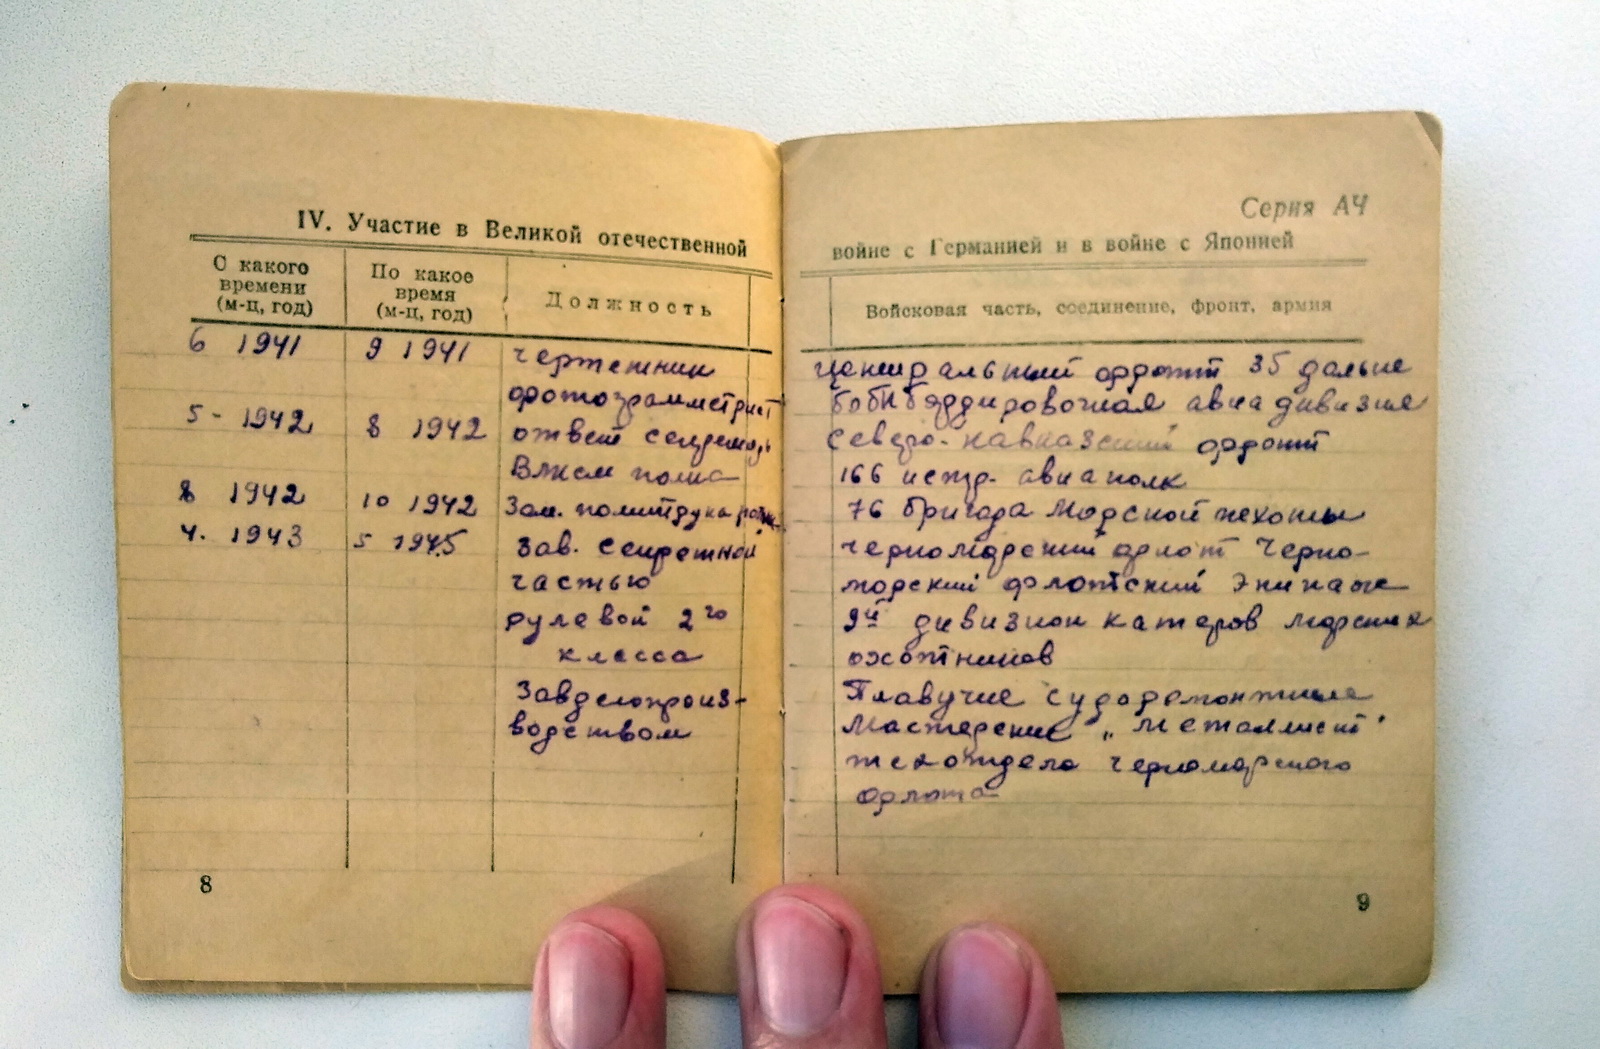 IV. Участие в Великой отечественной
С какого времени (м-ц, год)
По какое время (м-ц, год)
Должность
6 1941
9 1941
чертежник
фотограмметрист
5- 1942
8 1942
ответ секретарь
Влксм полка
8 1942
10 1942
Зам. политрука роты
4. 1943
5 1945
Зав. секретной
частью
рулевой 2го
класса
Завделопроиз-
водством
8
Серия АЧ
войне с Германией и в войне с Японией
Войсковая часть, соединение, фронт, армия
Центральный фронт 35 дальне
бомбардировочная авиадивизия
Северо-кавказский фронт
166 истр. авиаполк
76 бригада Морской пехоты
черноморский флот Черно-
морский флотский экипаж
9й дивизион катеров морских
охотников
Плавучие судоремонтные
Мастерские „Металлист"
техотдела черноморского
флота
9